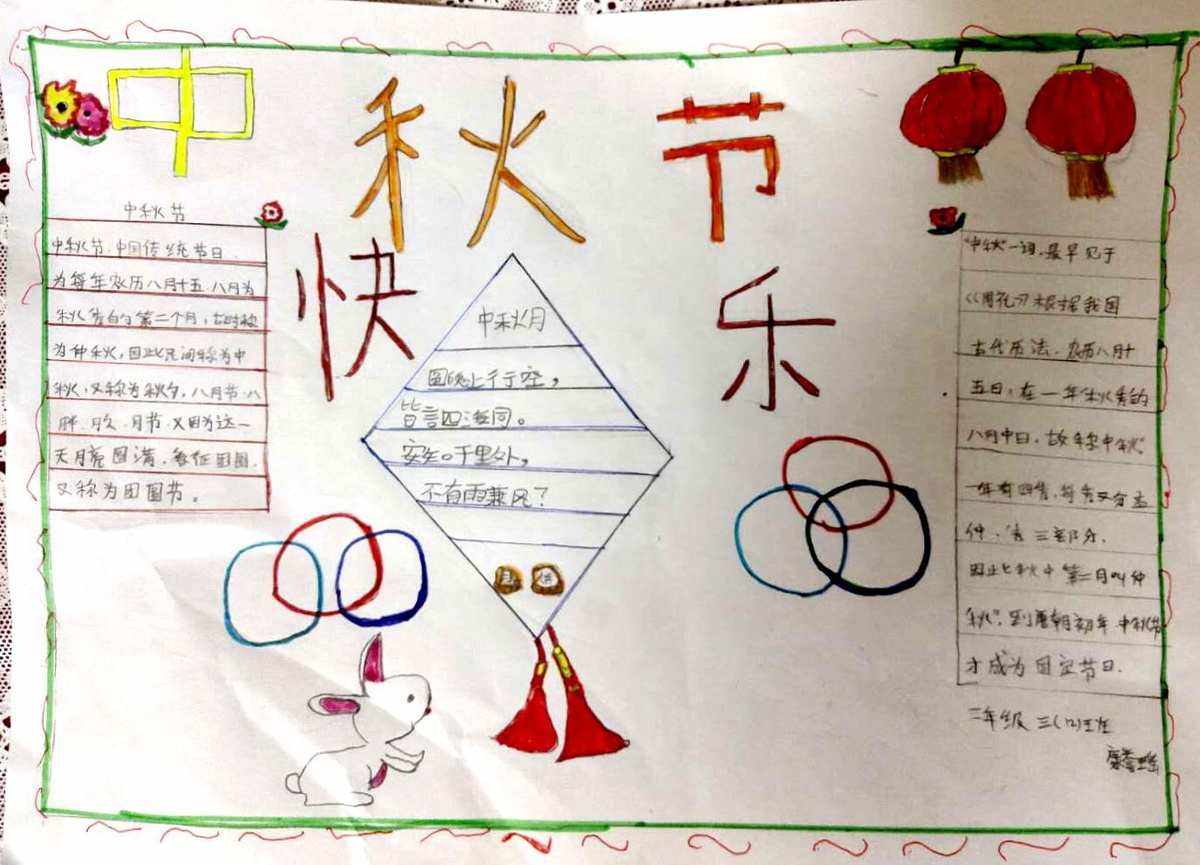 中秋节
快乐
中秋节
中秋节.中国传统节日.
为每年农历八月十五.八月为
秋季的第二个月,古时称
为仲秋,因此民间称为中
秋,又称为秋夕,八月节.八
月节.又因为这一
天月亮圆满.象征团圆.
又称为团圆节。
中秋月
圆魄上行空,
皆言四海同。
安知千里外,
不有雨兼风?
"中秋"一词,最早见于
《周礼》根据我国
古代历法,农历八月十
五日,在一年秋季的
八月中旬,故称中秋"
一年有四季,每季又分孟
仲、季三部分,
因此秋中第二月叫仲
秋",到唐朝初年,中秋节
才成为固定节日.
三年级 三(12)班